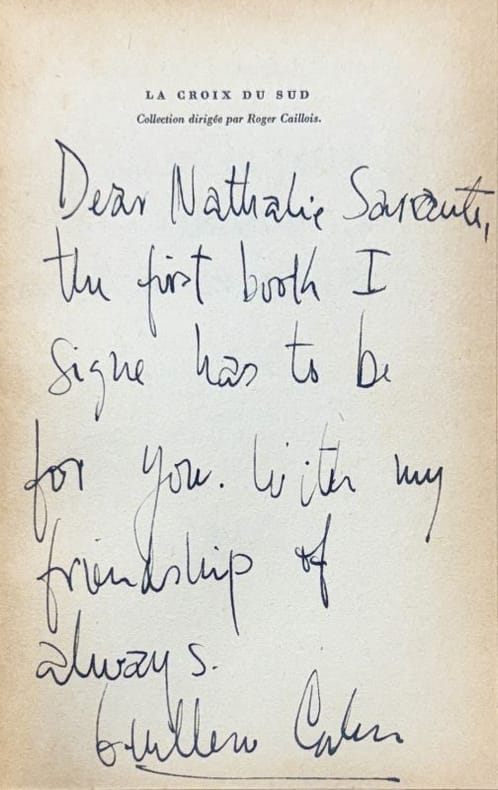 LA CROIX DU SUD
Collection dirigée par Roger Caillois.
Dear Nathalie Sarraute,
the first book I
signe has to be
for you. With my
friendship of
always.
Guillermo